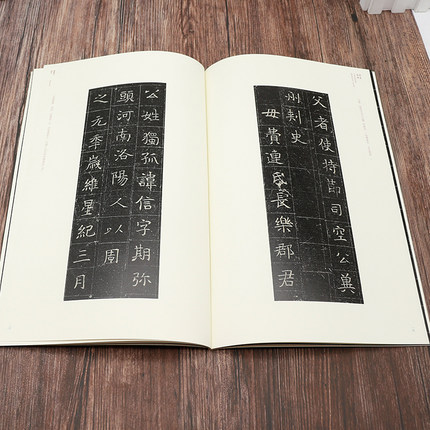 父者使持節司空公冀
州刺史
母費連氏長樂郡君
公姓獨孤諱信字期弥
頭河南洛陽人以周
之元年歲維星紀三月